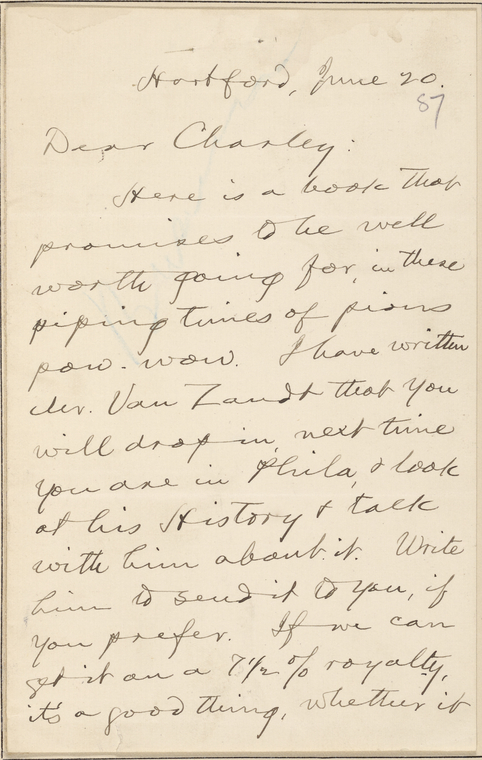 Hartford, June 20.
87
Dear Charley:
Here is a book that
promises to be well
worth going for, in these
piping times of pious
pow-wow. I have written
Mr. Van Zandt that you
will drop in, next time
you are in Phila, & look
at his History & talk
with him about it. Write
him to send it to you, if
you prefer. If we can
get it on a 7½ % royalty,
it's a good thing, whether it